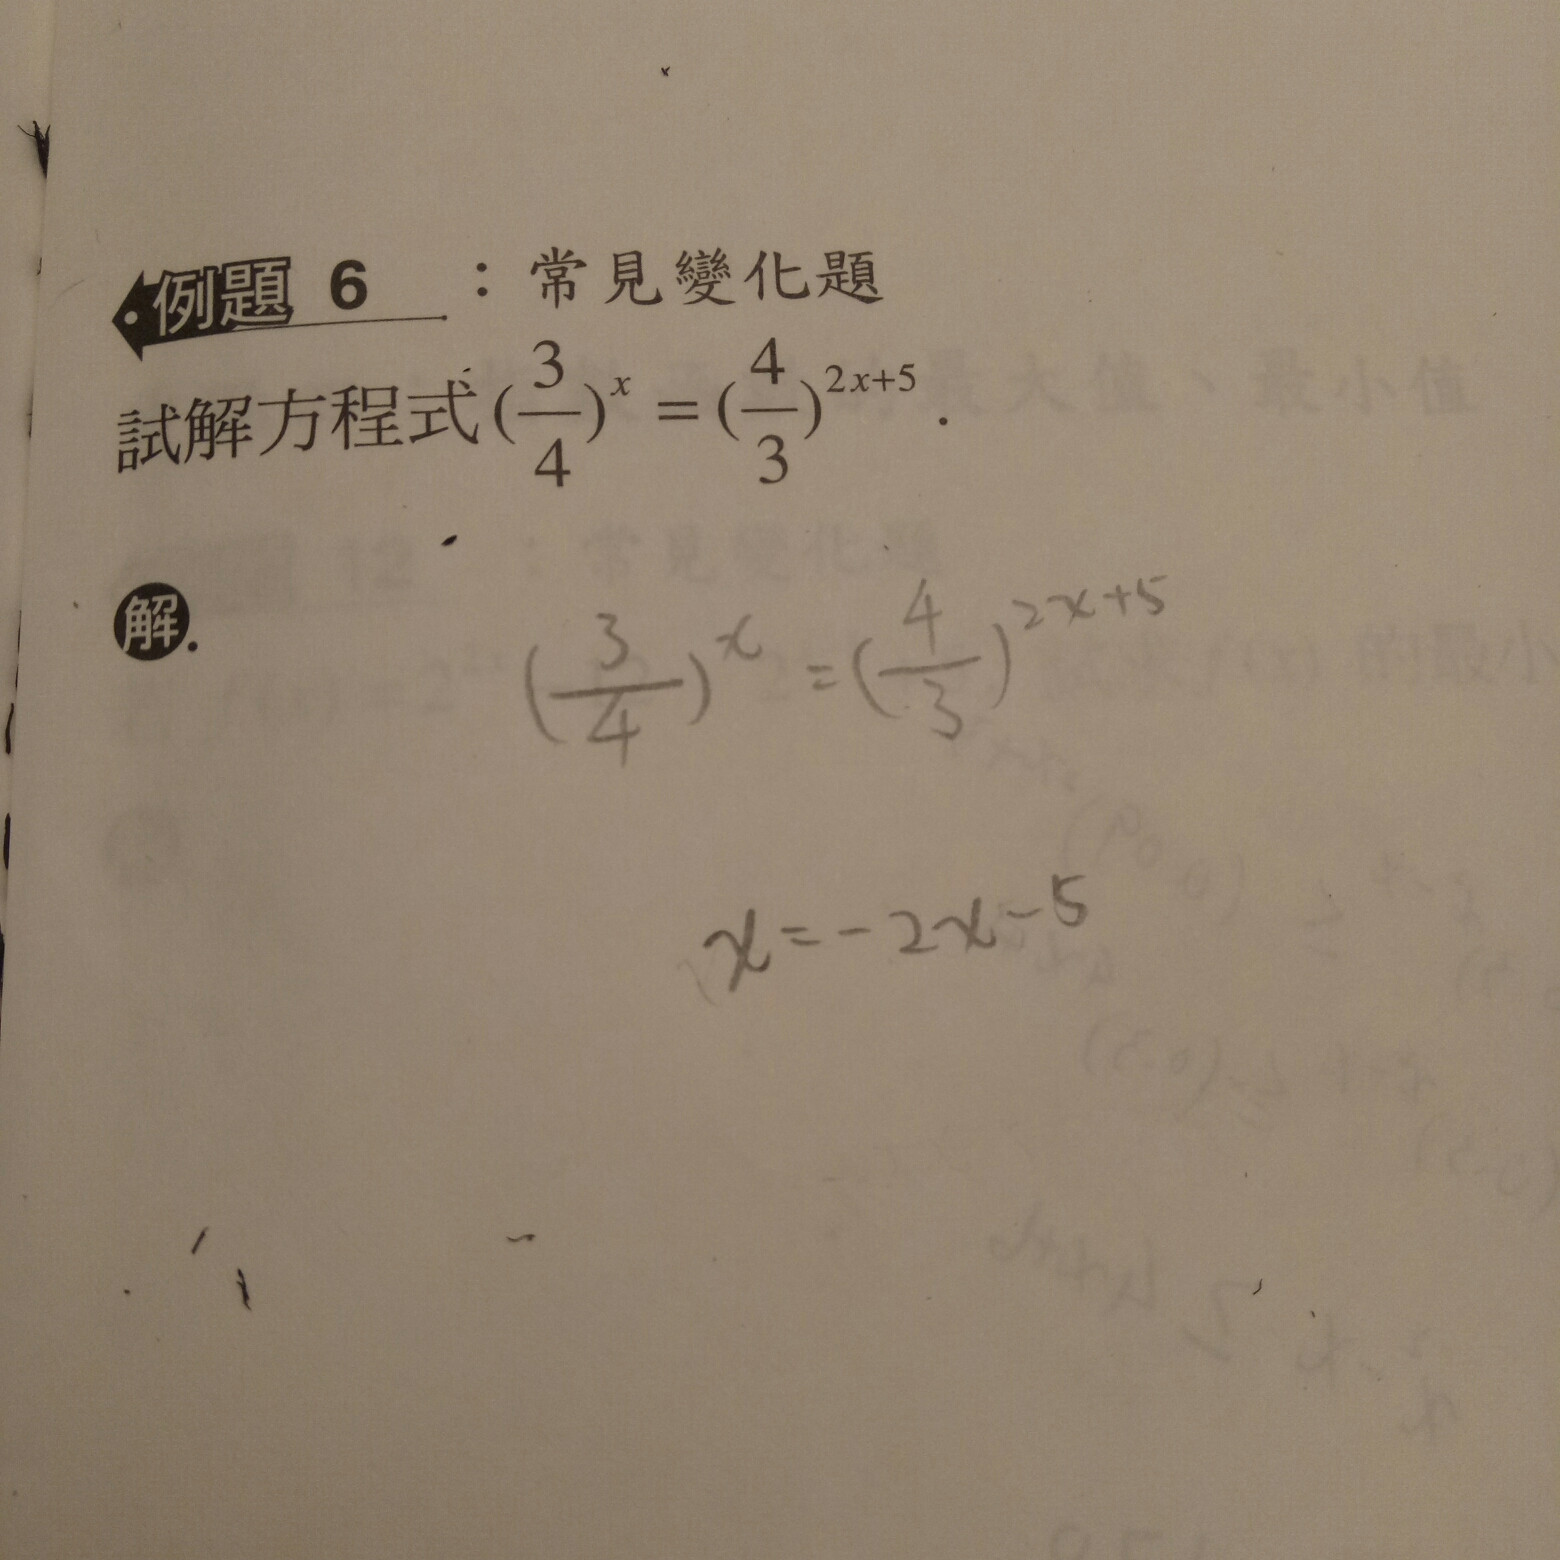 例題 6 ：常見變化題
試解方程式(3/4)^x = (4/3)^{2x+5}.
解.
(3/4)^x = (4/3)^{2x+5}
x = -2x-5